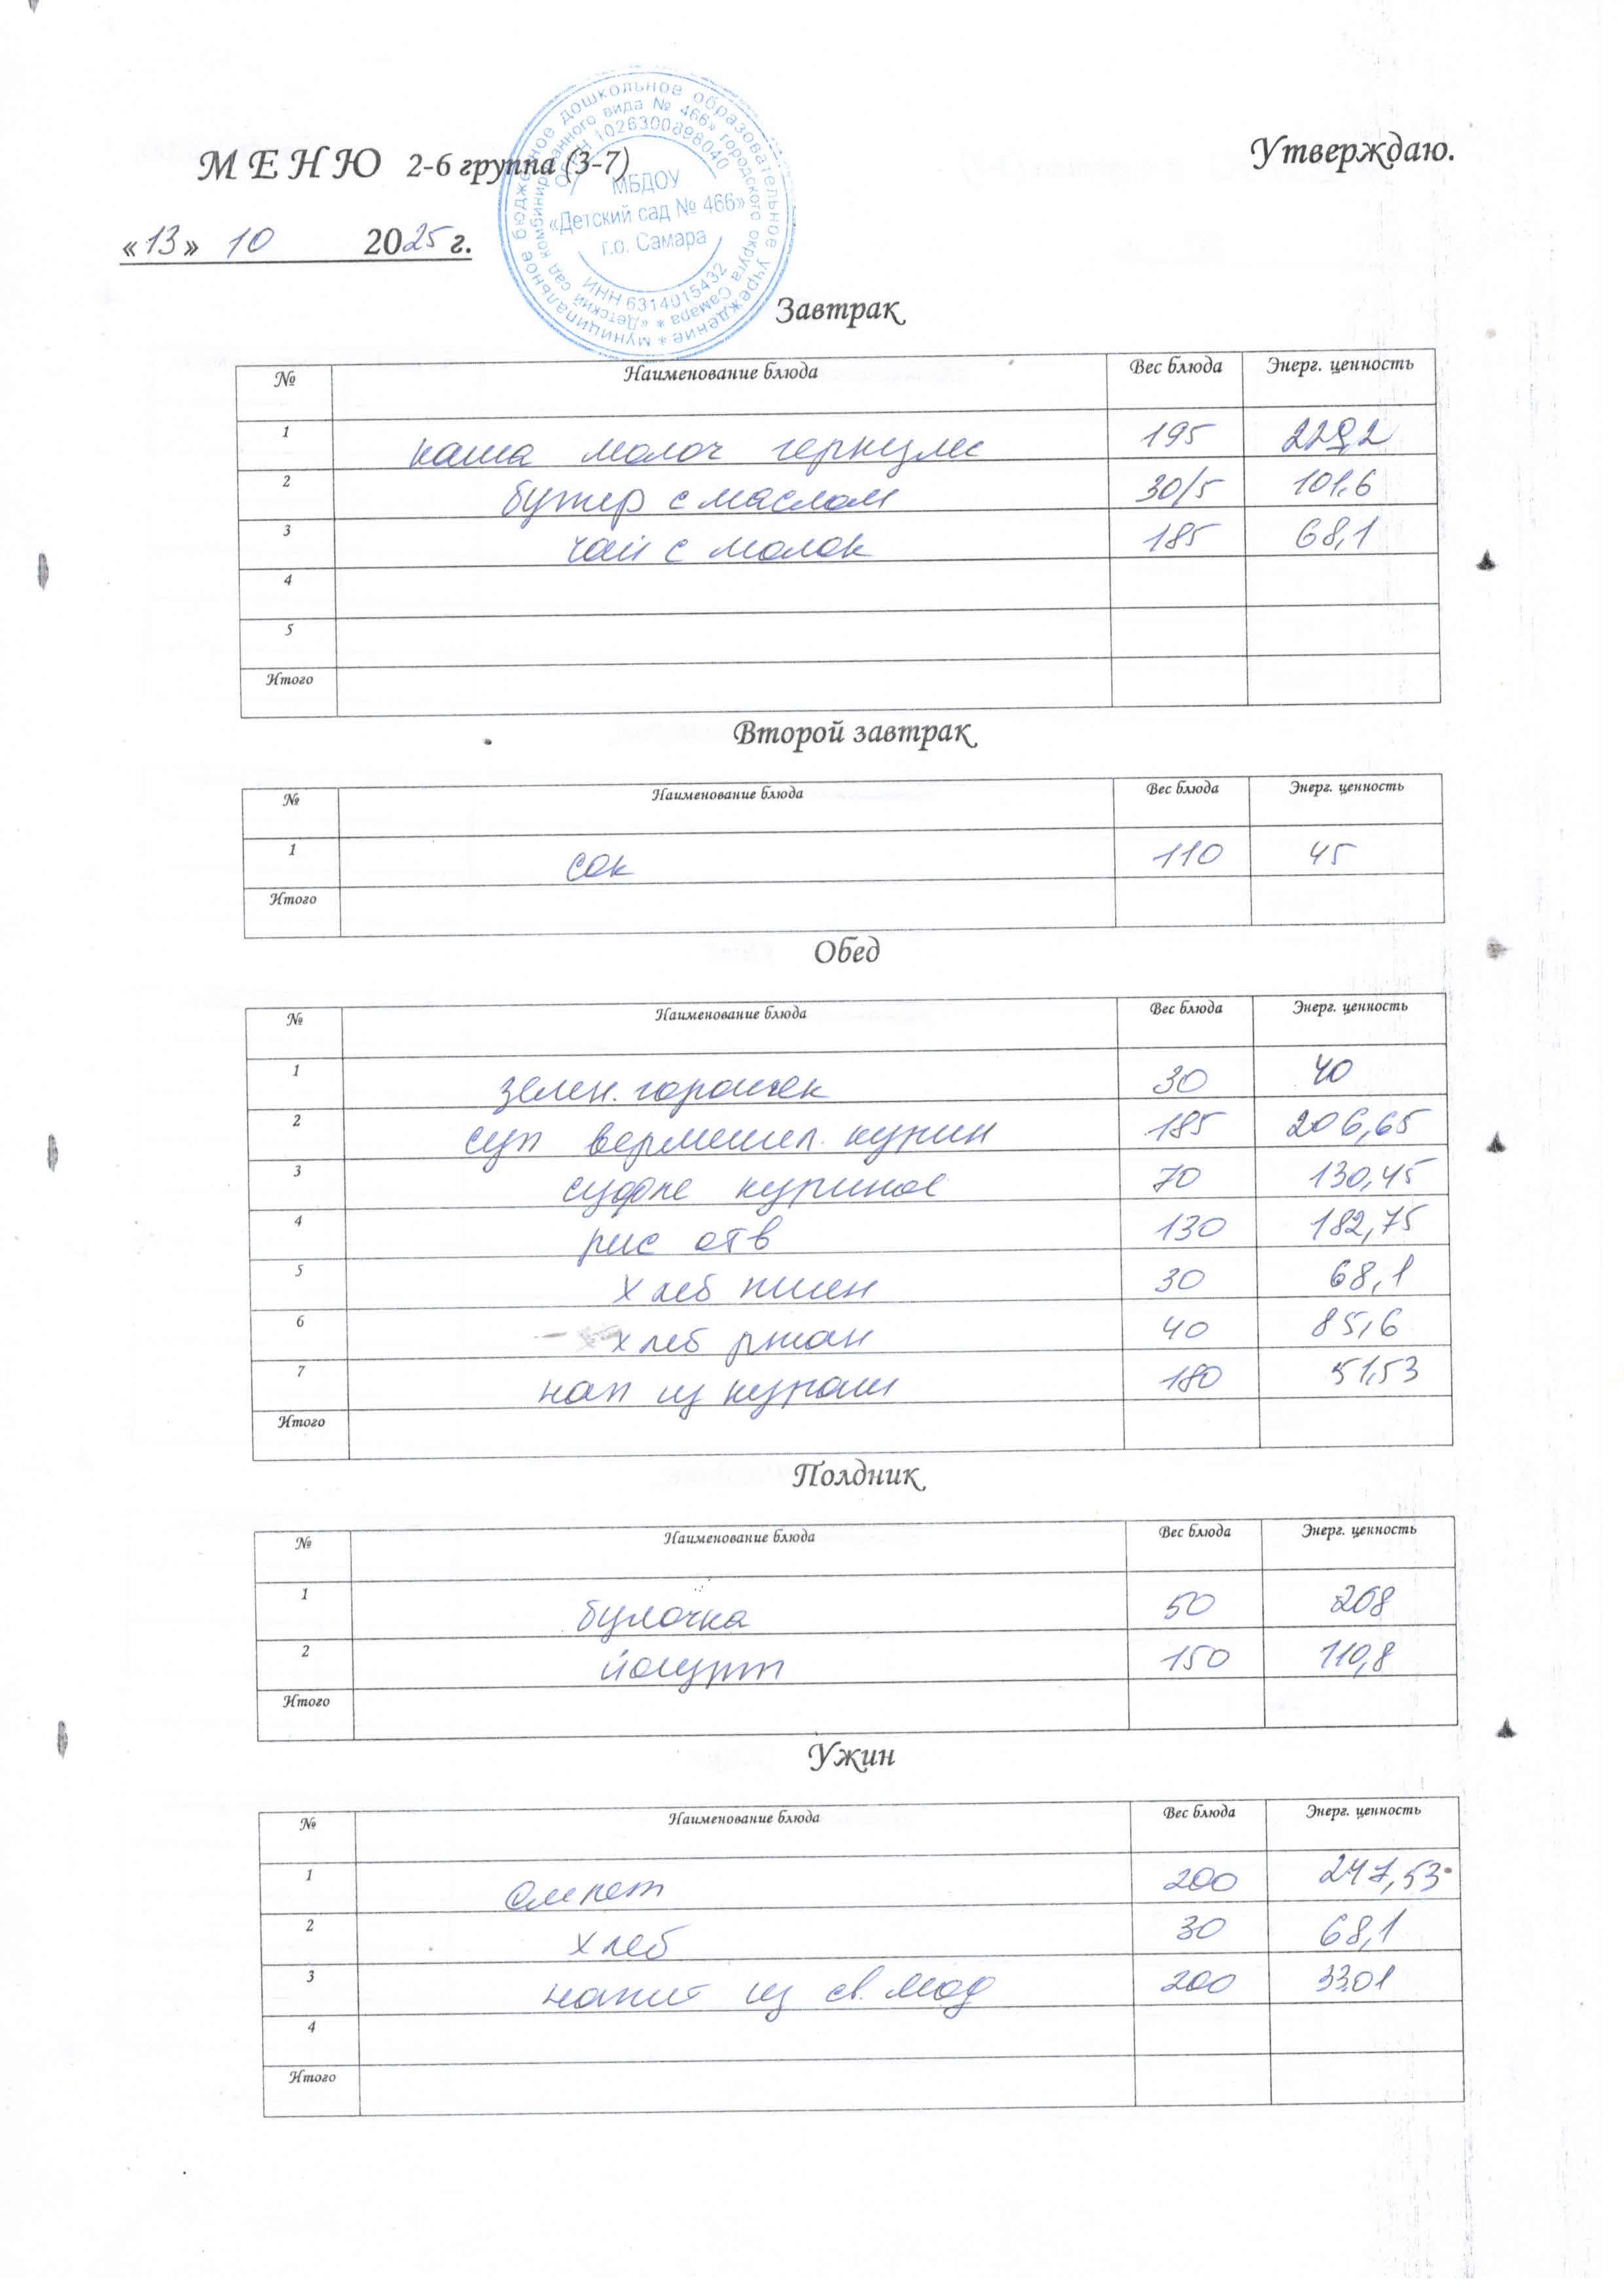 Утверждаю.
М Е Н Ю 2-6 группа (3-7)
«13» 10 2025 г.
муниципальное бюджетное дошкольное образовательное учреждение *
«Детский сад комбинированного вида № 466» городского округа Самара *
ОГРН 1026300898040
МБДОУ
«Детский сад № 466»
г.о. Самара
ИНН 6314015432
Завтрак
№ Наименование блюда Вес блюда Энерг. ценность
1 каша молоч геркулес 195
2 бутер с маслом 30/5 101,6
3 чай с молок 185 68,1
4
5
Итого
Второй завтрак
№ Наименование блюда Вес блюда Энерг. ценность
1 сок 110 45
Итого
Обед
№ Наименование блюда Вес блюда Энерг. ценность
1 зелен. горошек 30 40
2 суп вермишел. курин 185 206,65
3 суфле куриное 70 130,45
4 рис отв 130 182,75
5 хлеб пшен 30 68,1
6 хлеб ржан 40 85,6
7 нап из кураги 180 51,53
Итого
Полдник
№ Наименование блюда Вес блюда Энерг. ценность
1 булочка 50 208
2 йогурт 150 110,8
Итого
Ужин
№ Наименование блюда Вес блюда Энерг. ценность
1 омлет 200 247,53
2 хлеб 30 68,1
3 напит из св. 200
4
Итого